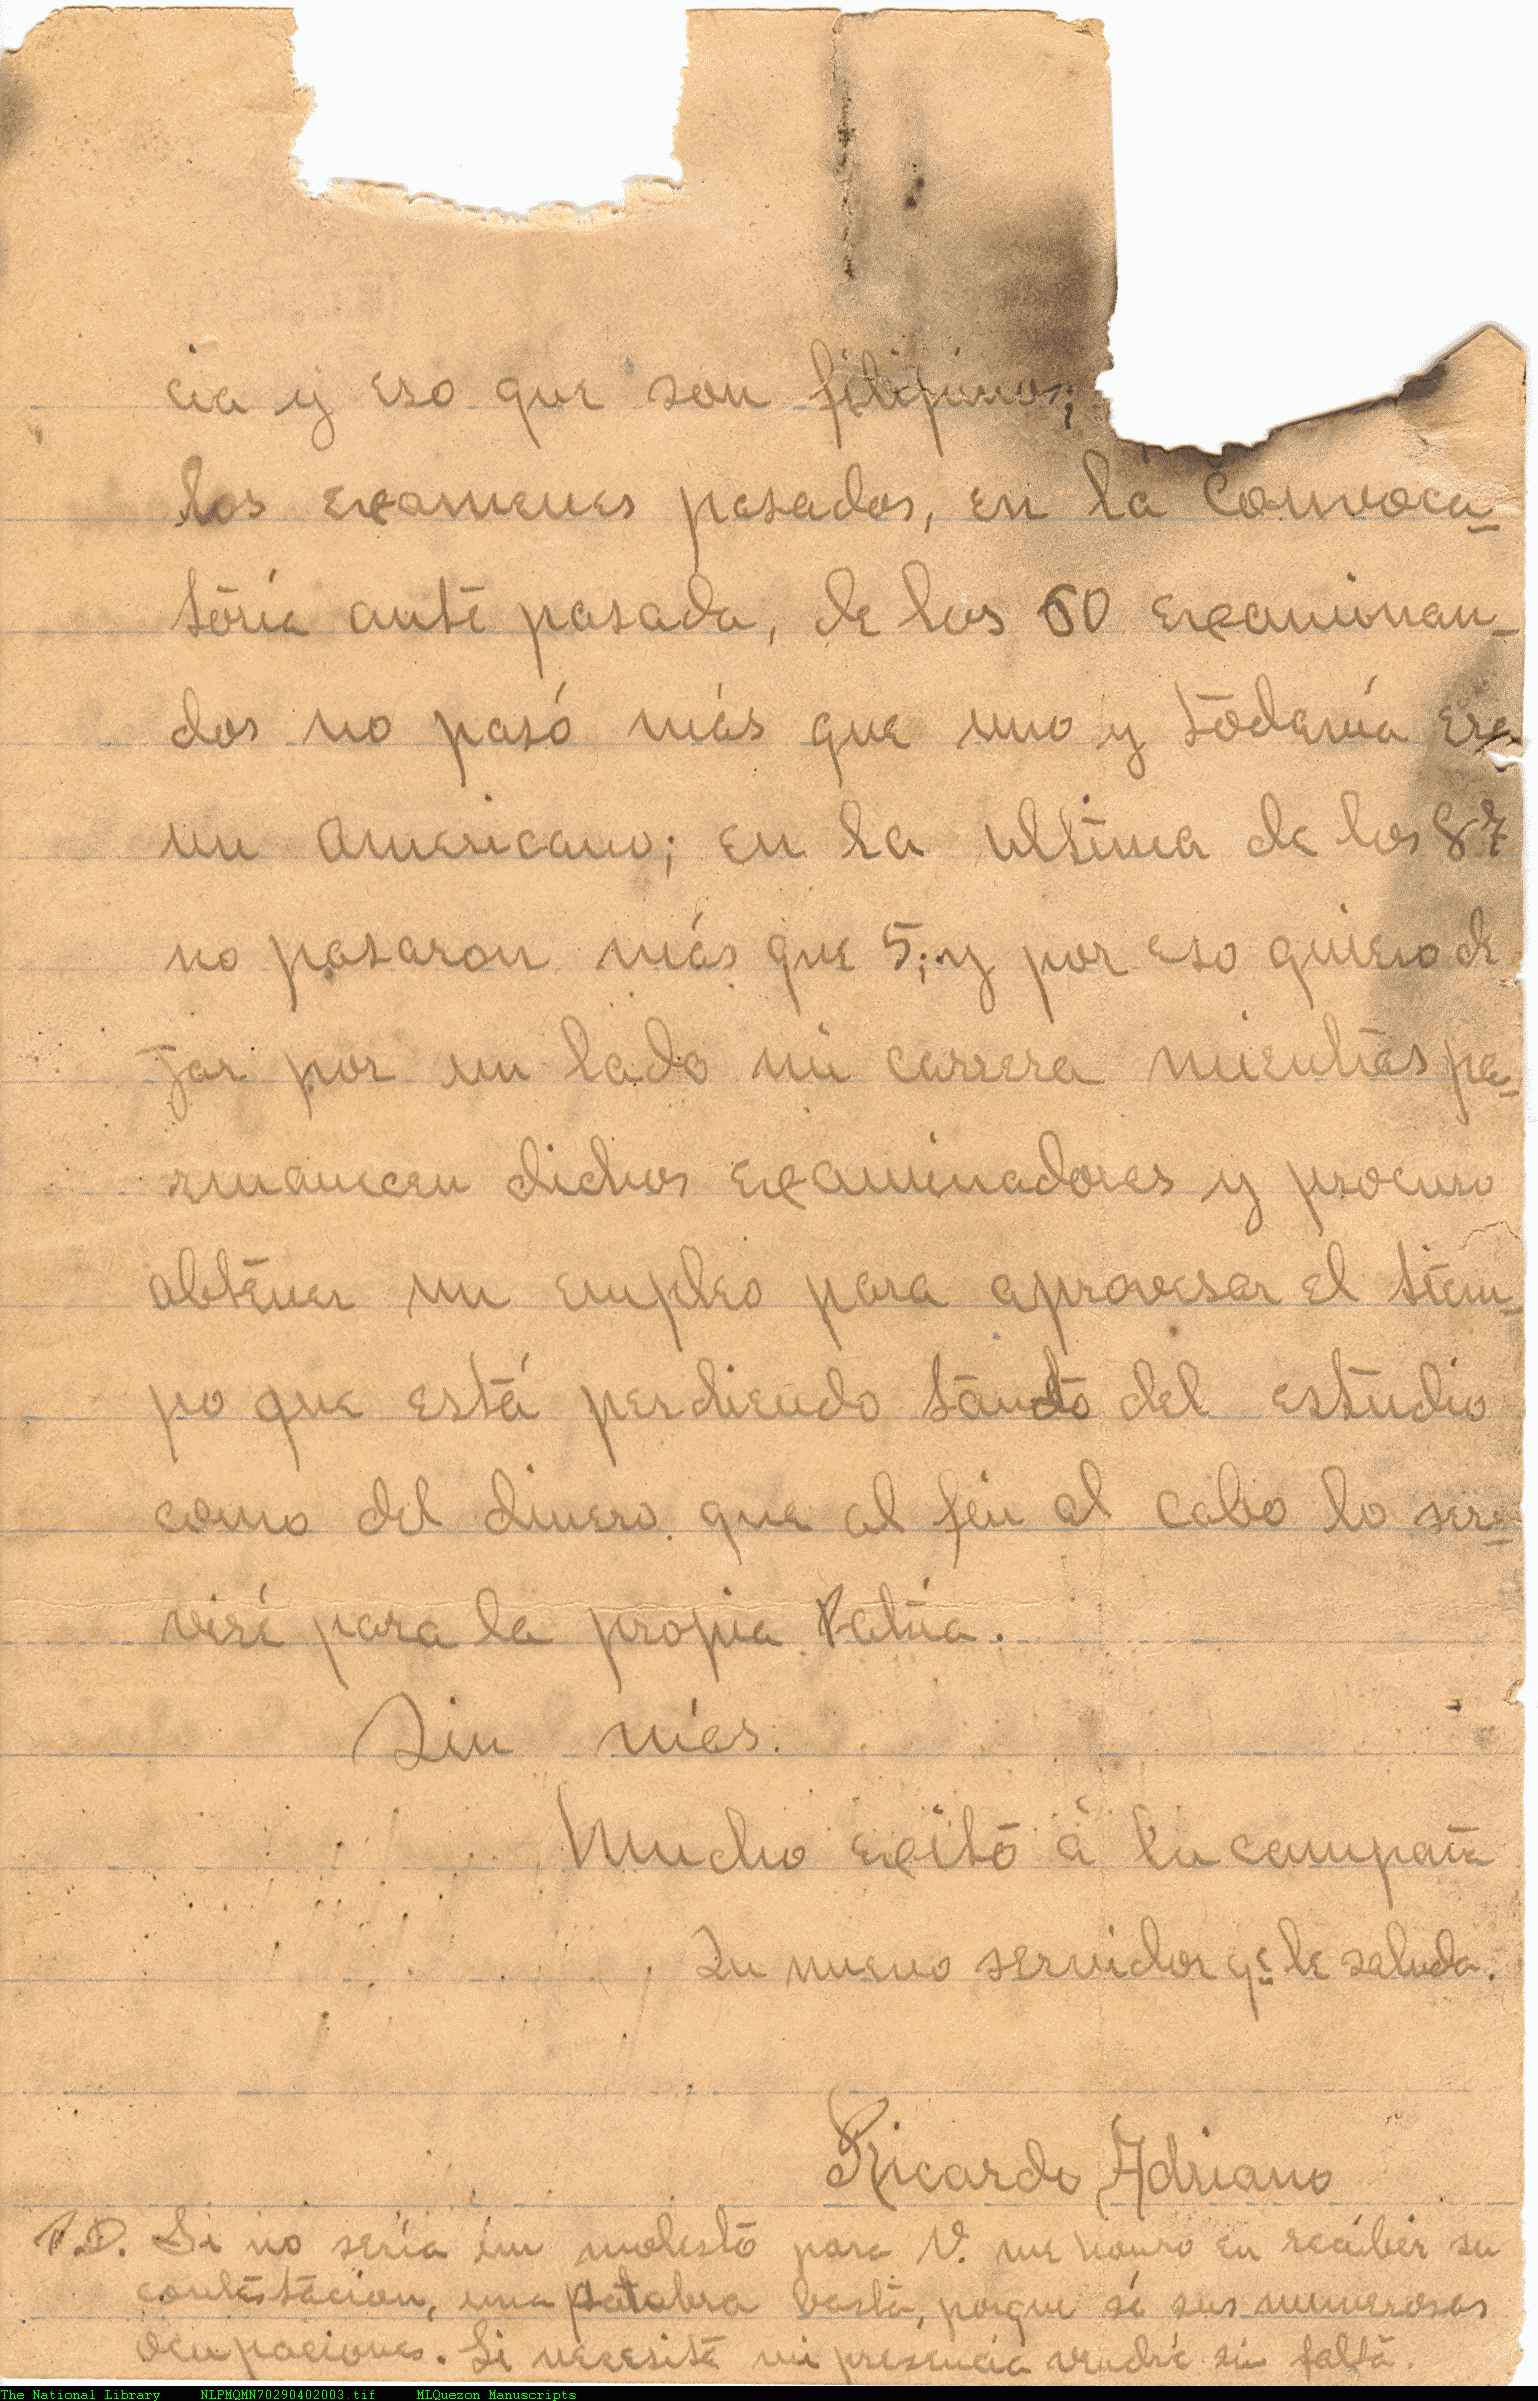 cia y eso que son filipinos;
los examenes pasados, en la Convoca-
toria ante pasada, de los 60 examinan-
dos no pasó más que uno y todavía era
un americano; en la ultima de los 87
no pasaron más que 5; y por eso quiero de
jar por un lado mi carrera mientras pe-
rmanecen dichos examinadores y procuro
obtener un empleo para aprovesar el tiem-
po que está perdiendo tanto del estudio
como del dinero que al fin al cabo lo ser-
viré para la propia Patria.
Sin más.
Mucho exito á la campaña
Su nuevo servidor qe le saluda.
Ricardo Adriano
P.D. Si no seria un molesto para V. me honro en recibir su
contestacion, una palabra basta, porque sé sus numerosas
ocupaciones. Si necesita mi presencia vendré sin falta.
The National Library NLPMQMN70290402003.tif MLQuezon Manuscripts